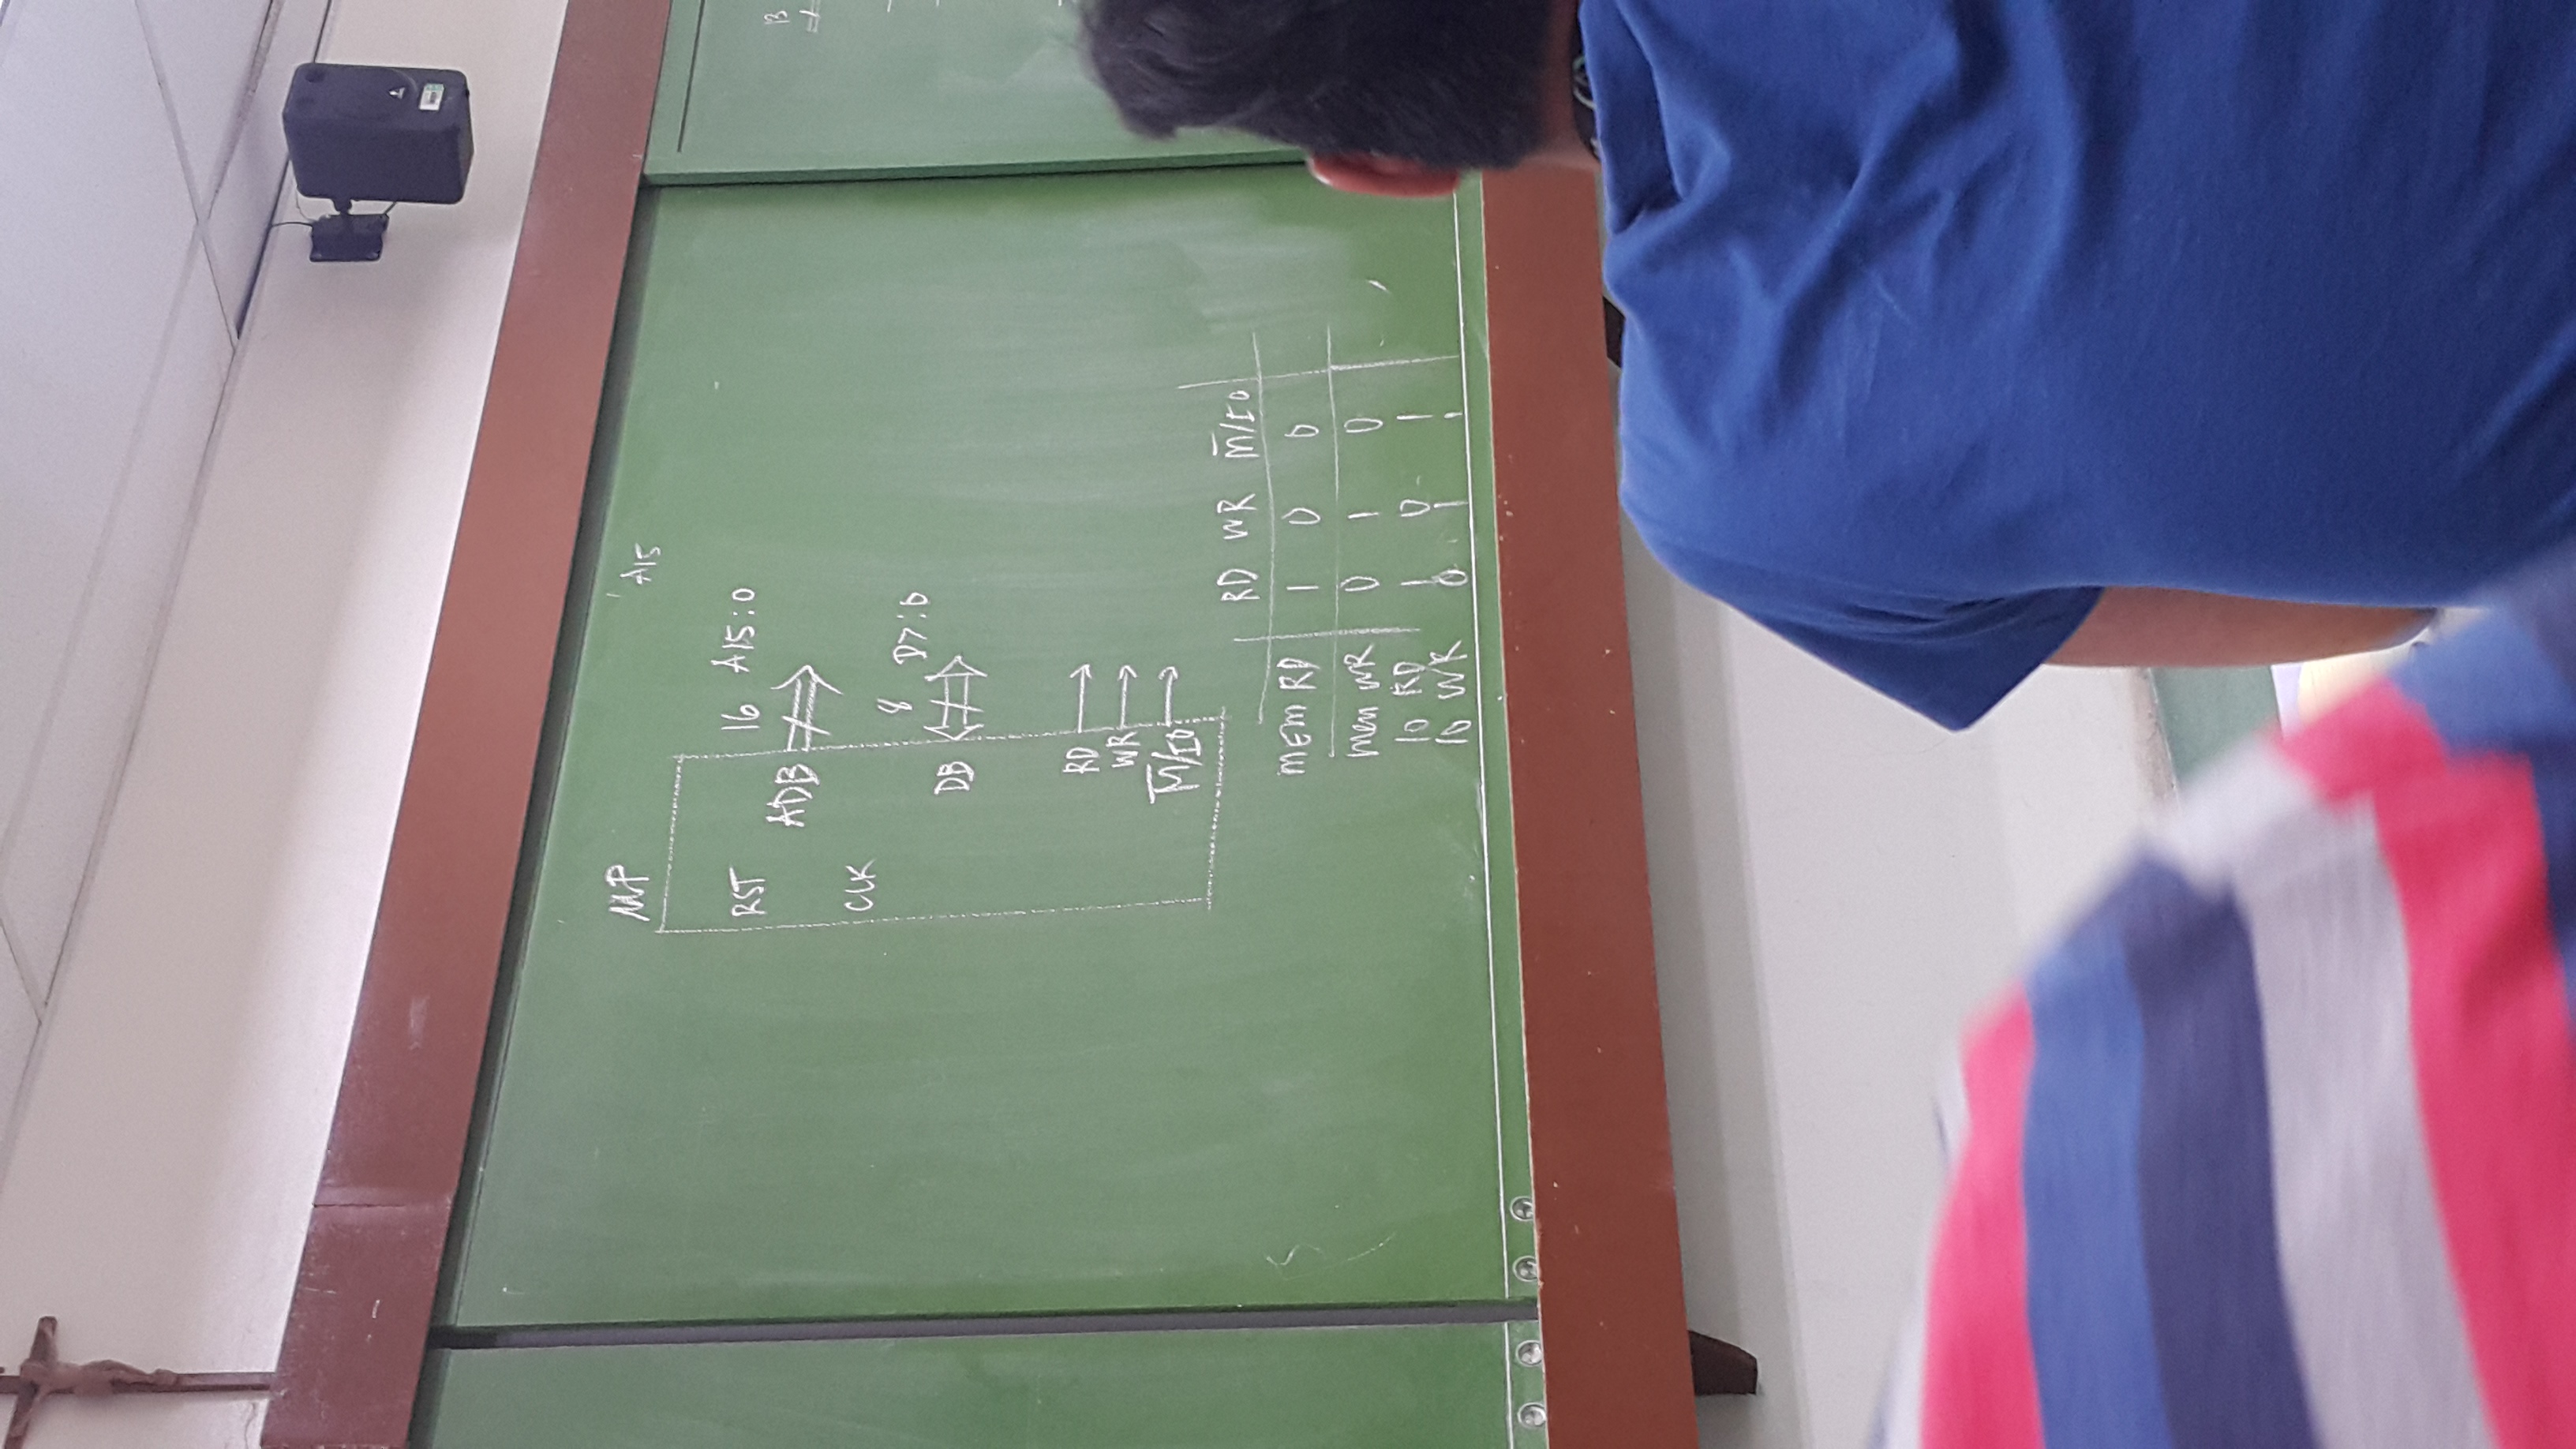 MP
A15
RST
16 A15:0
ADB
CLK
8 D7:0
DB
RD
WR
M̅/IO
RD WR M̅/IO
MEM RD 1 0 0
Mem WR 0 1 0
IO RD 1 0 1
IO WR 0 1 1
13